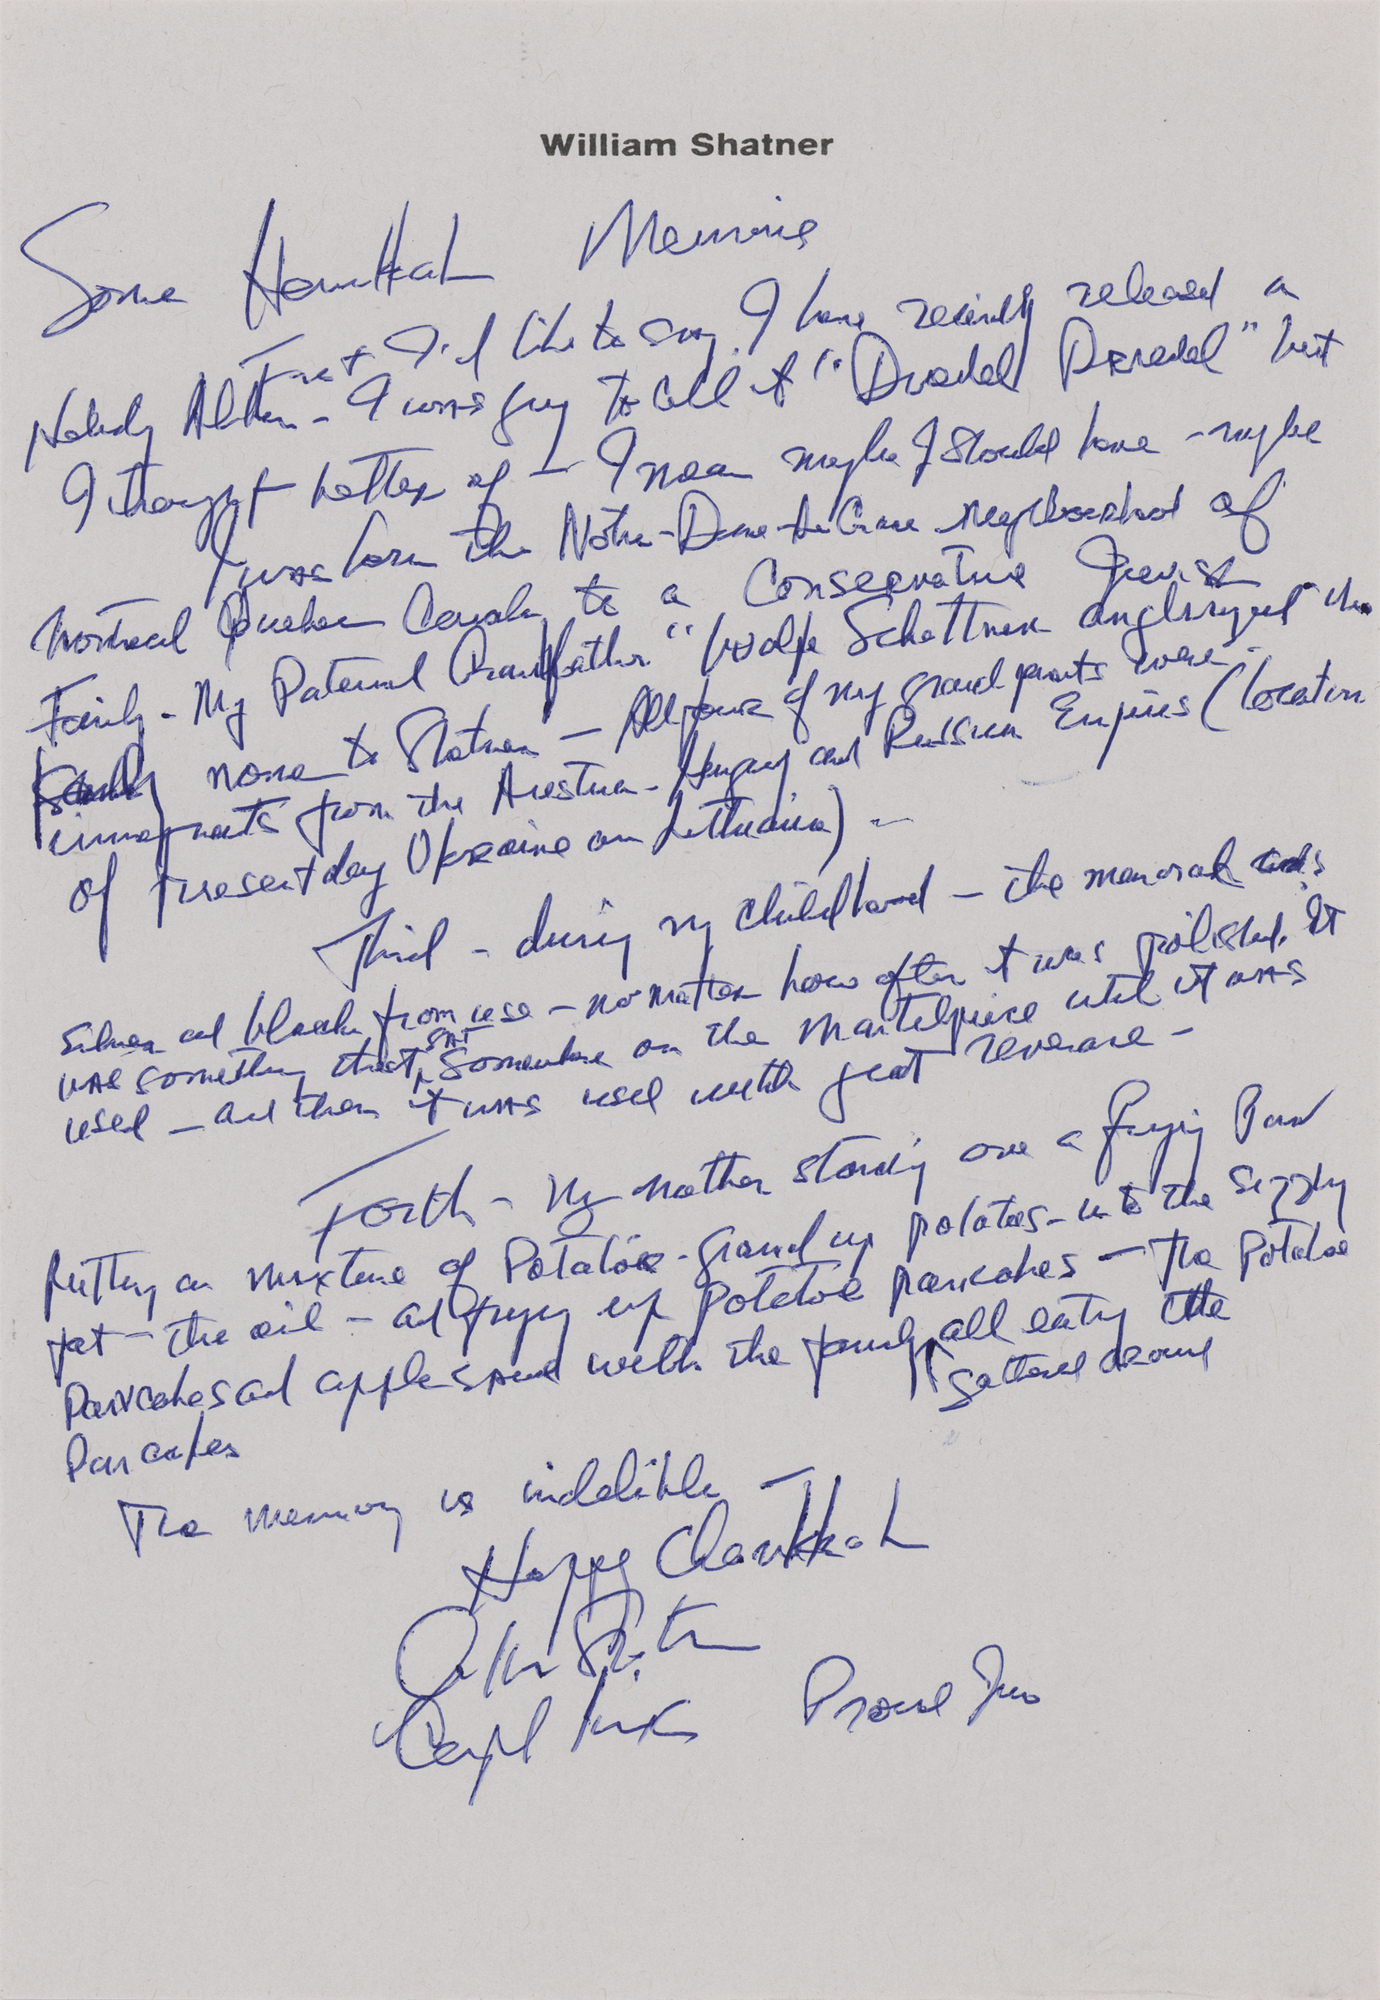 William Shatner
Some Hanukkah Memories
First I'd like to say I have recently released a
Holiday Album - I was going to call it "Dradel Dreadel" but
I thought better of - I mean maybe I should have - maybe
I was born the Notre-Dame-de-Grace neighborhood of
Montreal Quebec Canada to a Conservative Jewish
Family - My Paternal Grandfather "Wolfe Schattner anglicized the
family name to Shatner - All four of my grandparents were
immigrants from the Austria-Hungary and Russian Empires (location
of present day Ukraine and Lithuania) -
Third - during my childhood - the menorah was
silver and black from use - no matter how often it was polished. It
was something that sat somewhere on the mantelpiece until it was
used - and then it was used with great reverence -
Forth - My mother standing over a frying pan
putting an mixture of Potatoes - ground up potatoes - into the sizzling
fat - the oil - and frying up potatoe pancakes - The potatoe
pancakes and apple sauce with the family all eating the
gathered around
pancakes
The memory is indelible -
Happy Chanukkah
William Shatner
Captain Kirk Proud Jew